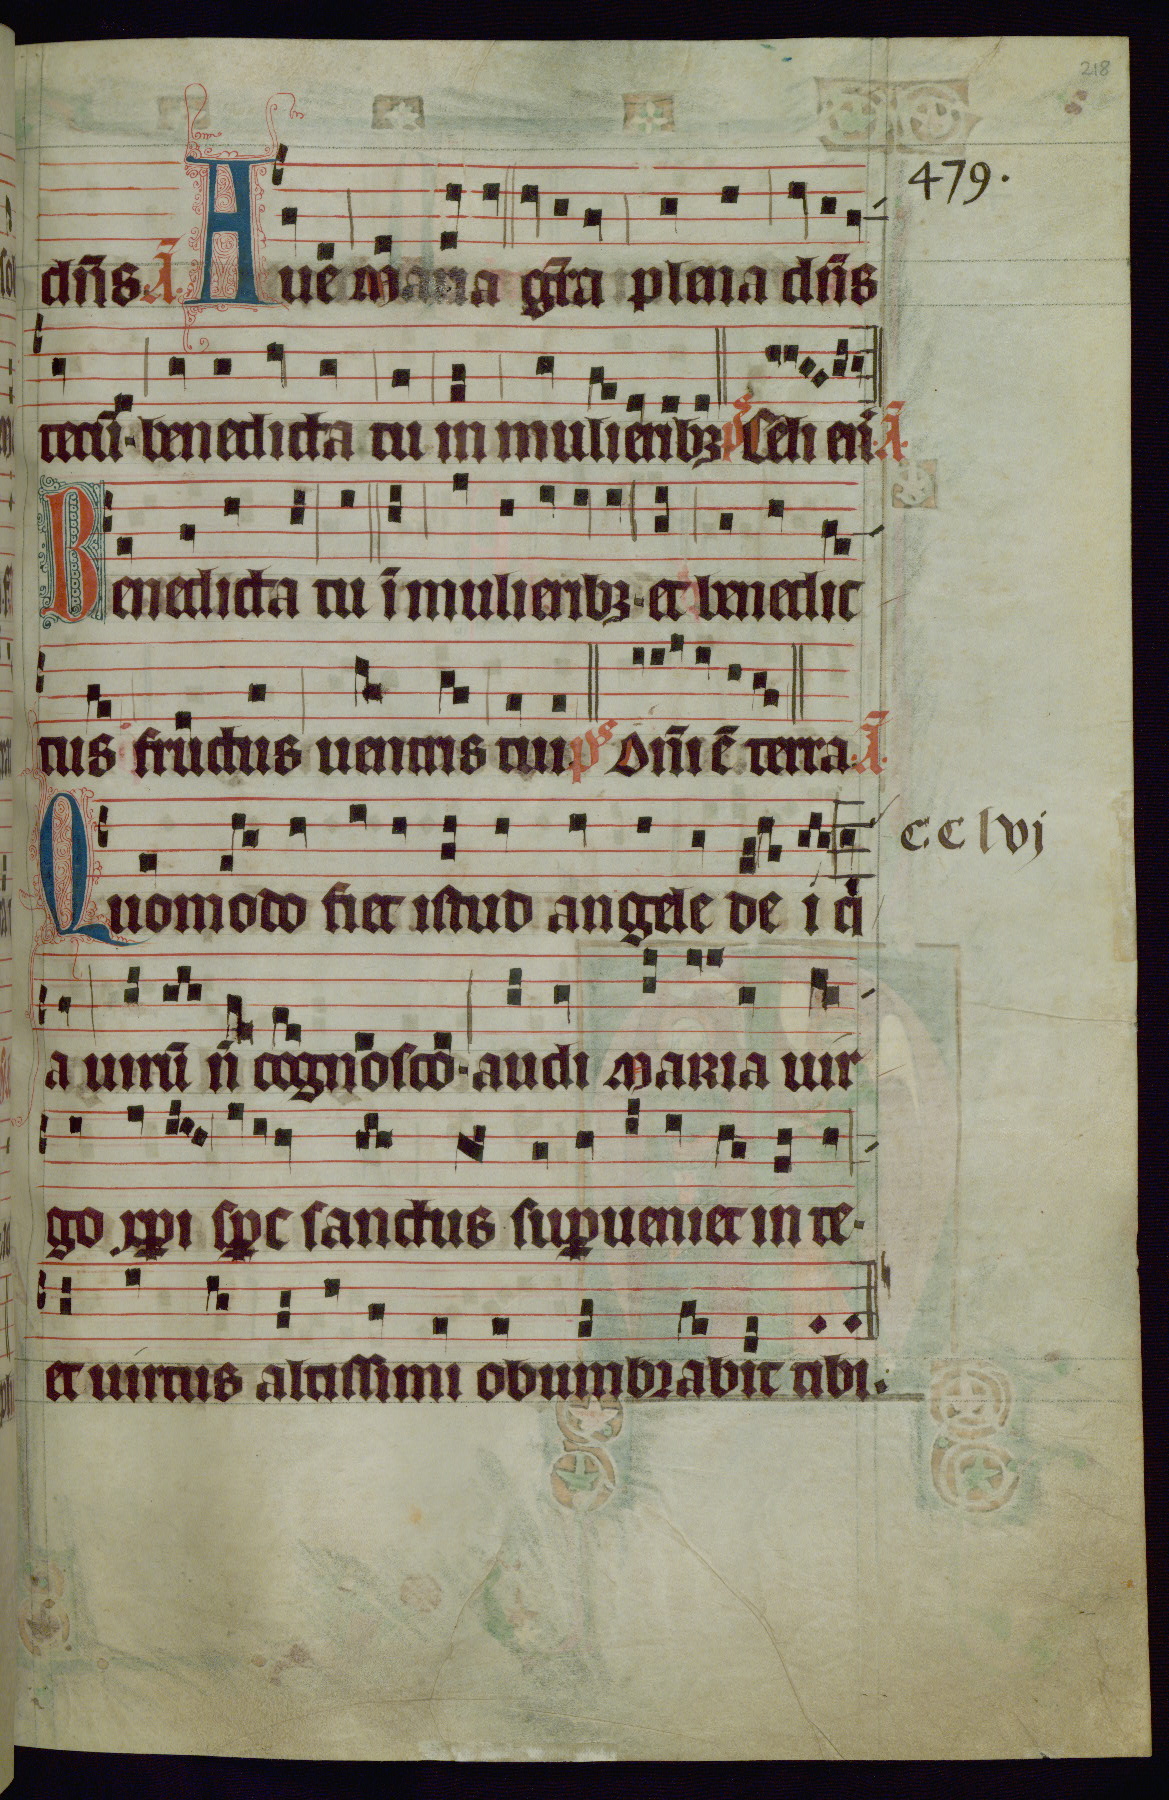 218
479.
dn̄s. A̅. Aue maria gr̄a plena dn̄s
tecū. benedicta tu in mulieribꝫ p̄s Celi en̄. A̅.
Benedicta tu ī mulieribꝫ. et benedic
tus fructus uentris tui. p̄s Dn̄i ē terra. A̅.
Quomodo fiet istud angele dei q̄
cclvj
a uirū n̄ cognosco. audi maria uir
go xp̄i sp̄c sanctus suꝑueniet in te.
et uirtus altissimi obumbrabit tibi.